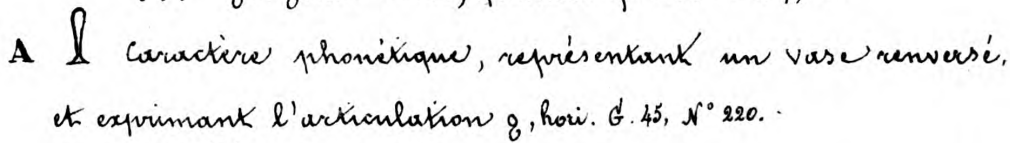 A caractère phonétique, représentant un vase renversé,
et exprimant l'articulation ϩ, hori. G. 45, N° 220.